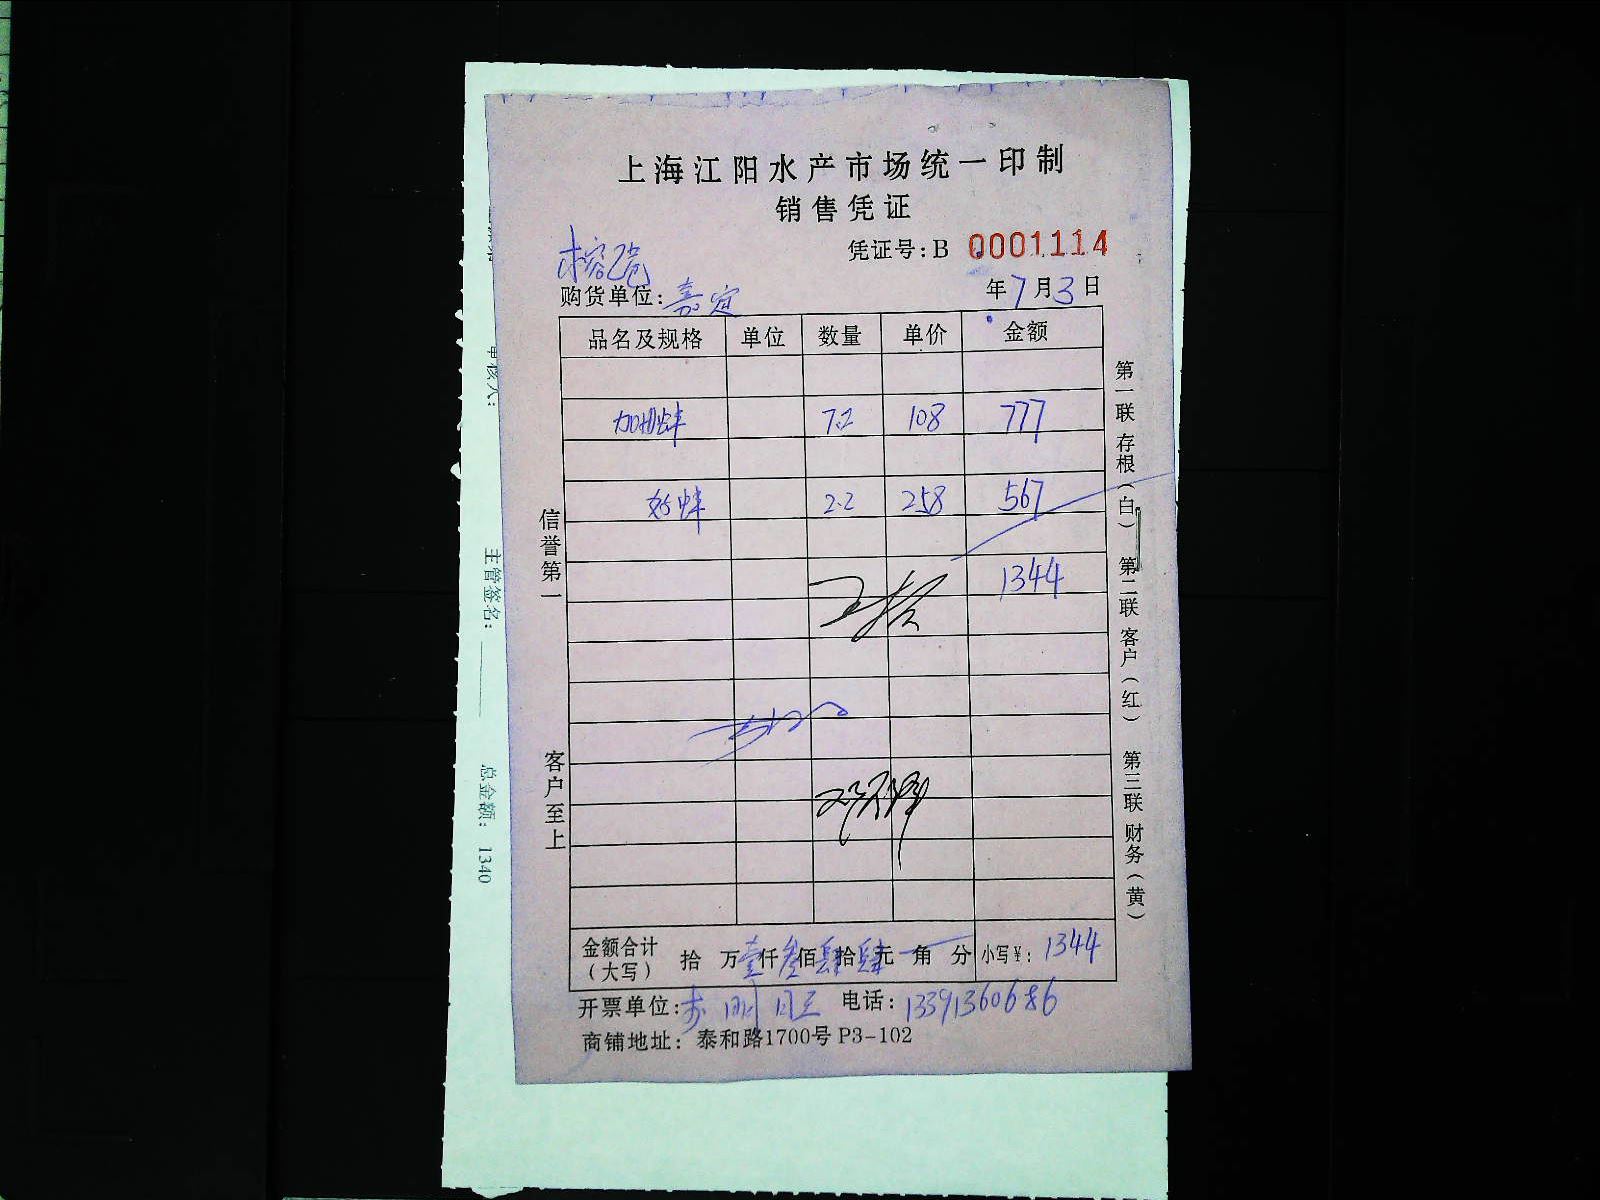 上海江阳水产市场统一印制
销售凭证
凭证号:B 0001114
榕港
购货单位:嘉定
年7月3日
品名及规格 单位 数量 单价 金额
加拿蚌 7.2 108 777
蚌 2.2 258 567
1344
金额合计(大写) 拾万壹仟叁佰肆拾肆元角分 小写¥:1344
开票单位: 电话:13391360686
商铺地址:泰和路1700号P3-102
信誉第一
客户至上
第一联 存根(白) 第二联 客户(红) 第三联 财务(黄)
审核人:
主管签名:
总金额: 1340